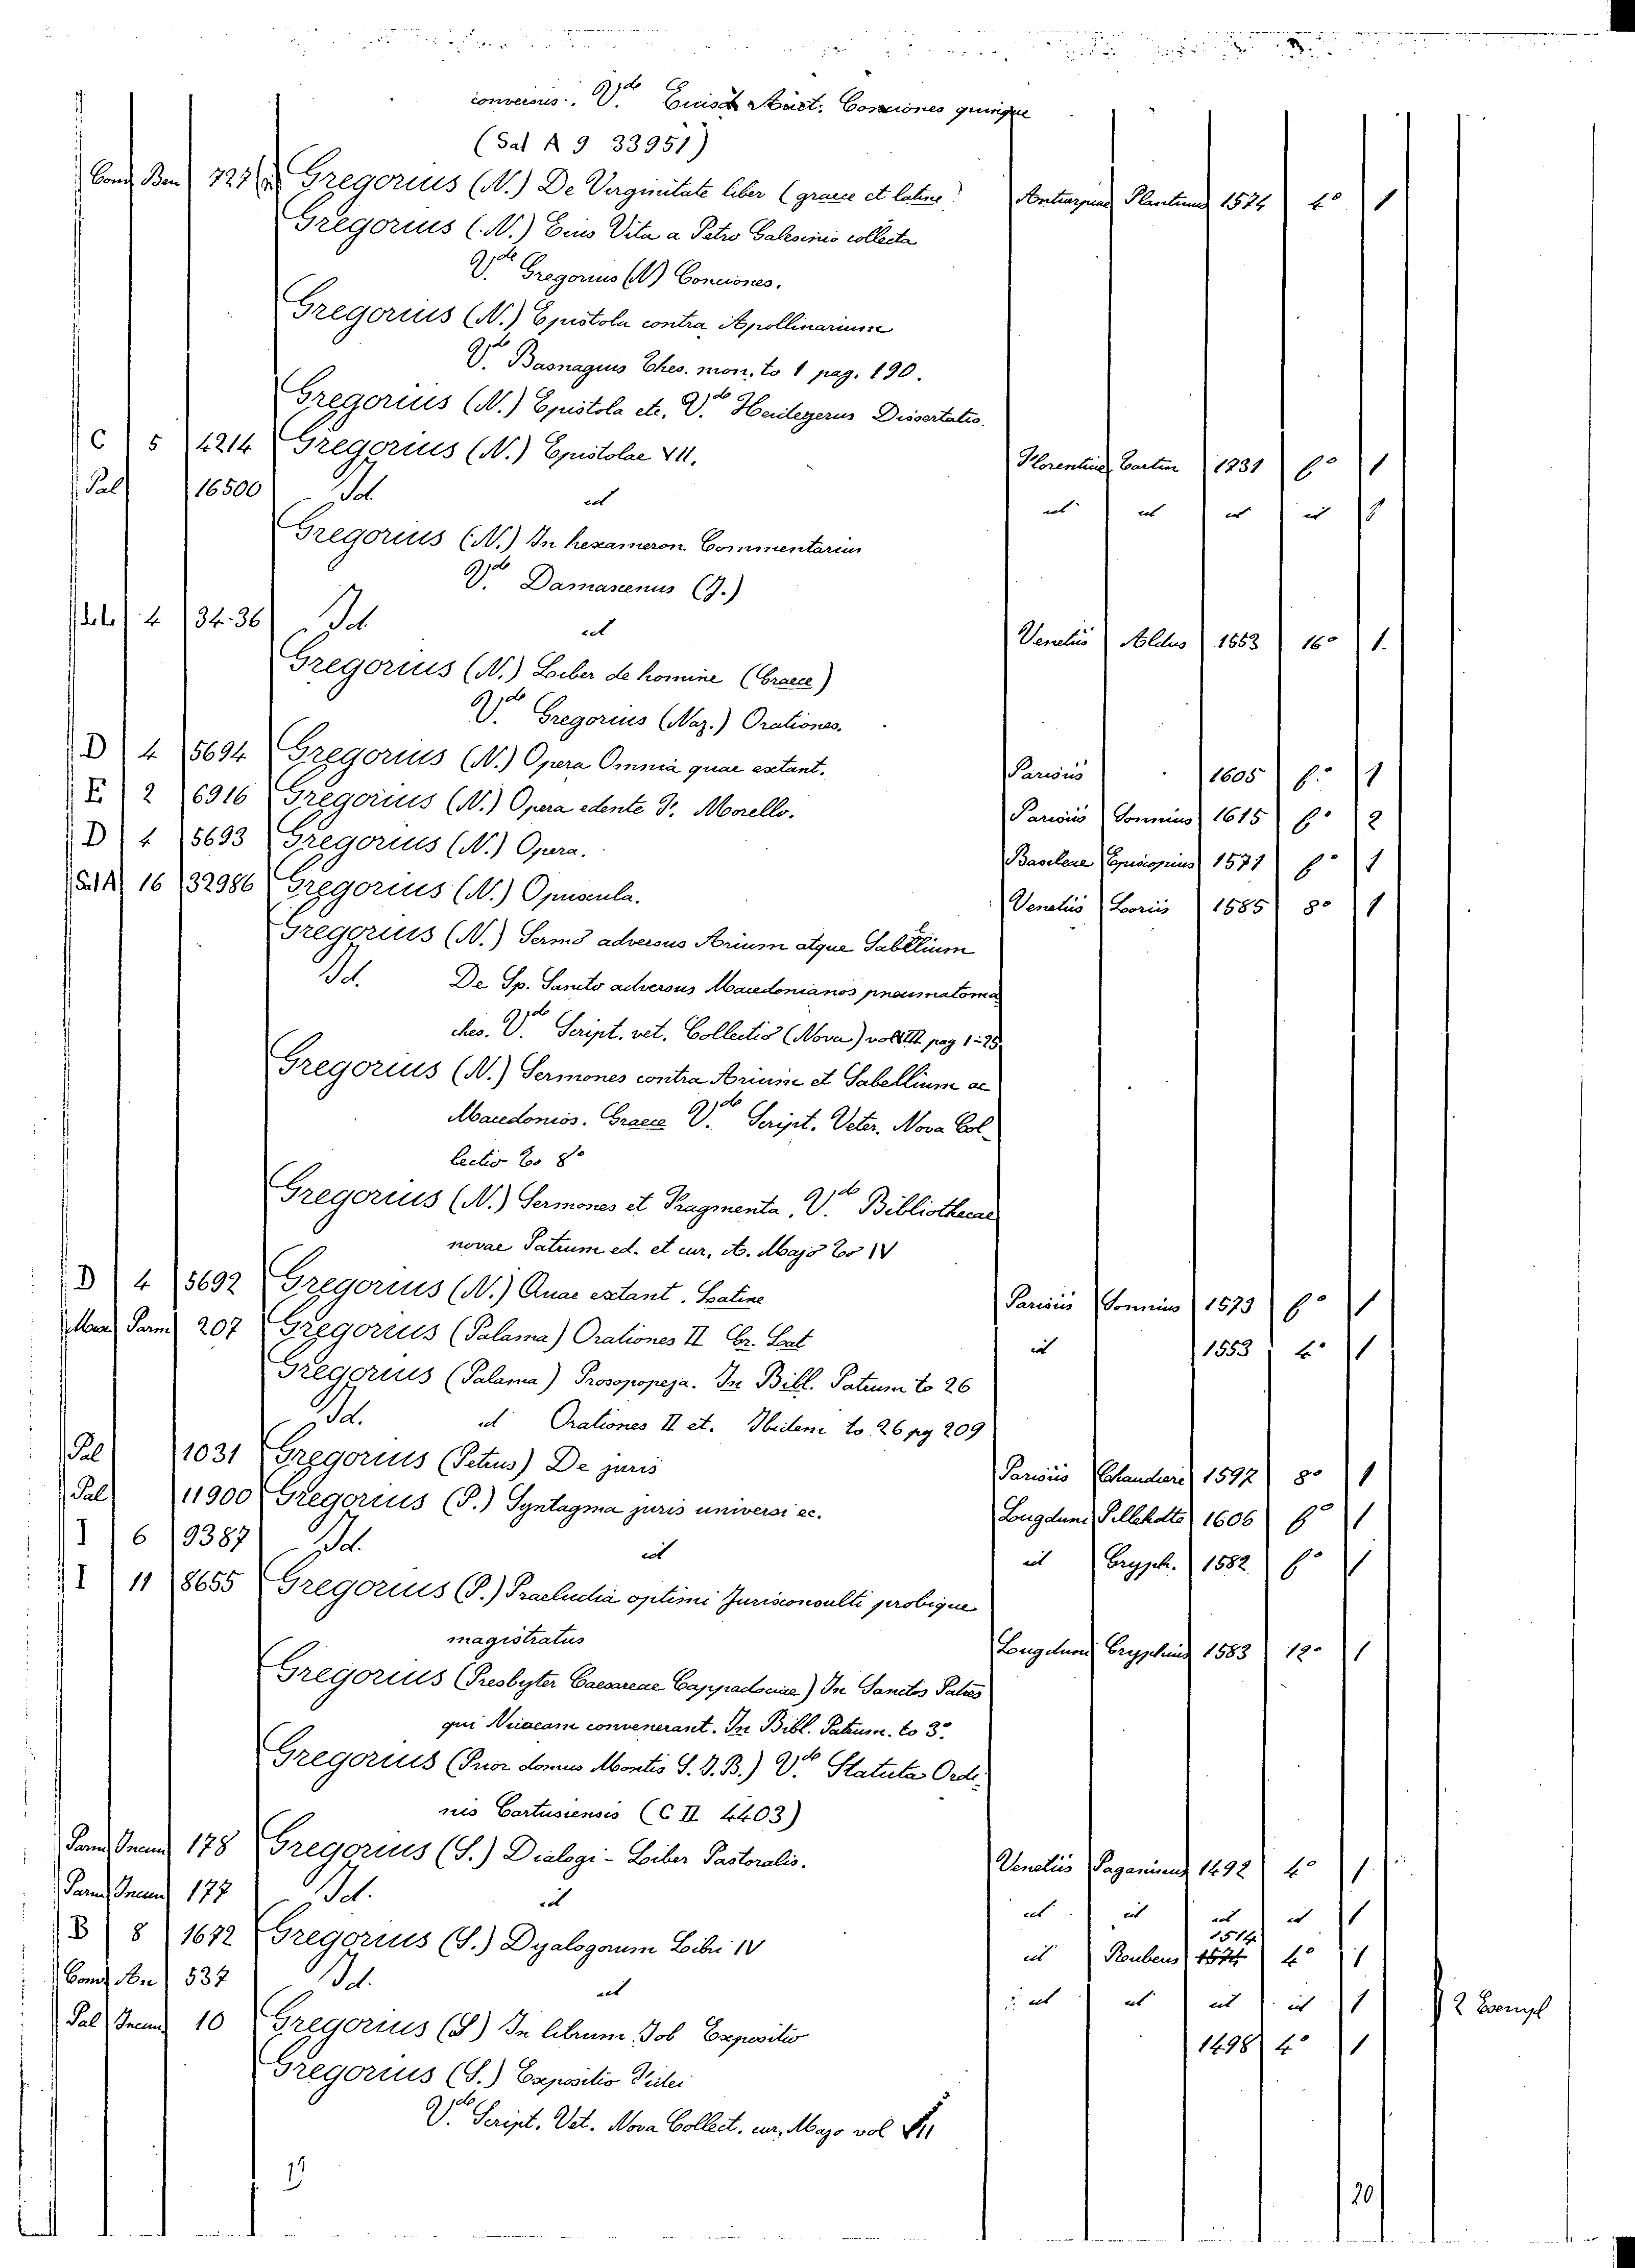 conversus. V.de Eiusd. Auct. Conciones quinque
(Sal A 9 33951)
Cons Ben 727 Gregorius (N.) De Verginitate liber (graece et latine) Antuerpiae Plantinus 1574 4° 1
Gregorius (N.) Eius Vita a Petro Galesinio collecta
V.de Gregorius (N) Conciones.
Gregorius (N.) Epistola contra Apollinarium
V.de Basnagius Thes. mon. to 1 pag. 190.
Gregorius (N.) Epistola etc. V.de Heidegerus Dissertatio.
C 5 4214 Gregorius (N.) Epistolae VII. Florentiae 1731 f° 1
Pal 16500 Id. id id id id id 1
Gregorius (N.) In hexameron Commentarius
V.de Damascenus (J.)
4 34.36 Id. id Venetiis Aldus 1553 16° 1.
Gregorius (N.) Liber de homine (Graece)
V.de Gregorius (Naz.) Orationes.
D 4 5694 Gregorius (N.) Opera Omnia quae extant. Parisiis 1605 f.° 1
E 2 6916 Gregorius (N.) Opera edente F. Morello. Parisiis Sonnius 1615 f° 2
D 4 5693 Gregorius (N.) Opera. Basileae Episcopius 1571 f° 1
Sal A 16 32986 Gregorius (N.) Opuscula. Venetiis Loriis 1585 8° 1
Gregorius (N.) Sermo adversus Arium atque Sabellium
Id. De Sp. Sancto adversus Macedonianos pneumatoma
chos. V.de Script. vet. Collectio (Nova) vol VIII pag 1-25
Gregorius (N.) Sermones contra Arium et Sabellium ac
Macedonios. Graece V.de Script. Veter. Nova Col-
lectio to 8°
Gregorius (N.) Sermones et Fragmenta. V.de Bibliothecae
novae Patrum ed. et cur. A. Majo to IV
D 4 5692 Gregorius (N.) Quae extant. Latine Parisiis Sonnius 1573 f° 1
Parm 207 Gregorius (Palama) Orationes II Gr. Lat id 1553 4° 1
Gregorius (Palama) Prosopopeja. In Bibl. Patrum to 26
Id. id Orationes II et. Ibidem to. 26 pg 209
Pal 1031 Gregorius (Petrus) De juris Parisiis Chaudiere 1597 8° 1
Pal 11900 Gregorius (P.) Syntagma juris universi ec. Lugduni Pillehotte 1606 f° 1
I 6 9387 Id. id id Gryph. 1582 f° 1
I 11 8655 Gregorius (P.) Praeludia optimi Jurisconsulti probique
magistratus Lugduni Gryphius 1583 12° 1
Gregorius (Presbyter Caesareae Cappadociae) In Sanctos Patres
qui Nicaeam convenerant. In Bibl. Patrum. to 3°.
Gregorius (Prior domus Montis S. J. B.) V.de Statuta Ordi-
nis Cartusiensis (C II 4403)
Parm Incun 178 Gregorius (S.) Dialogi - Liber Pastoralis. Venetiis Paganinus 1492 4° 1
Parm Incun 177 Id. id id id id id 1
B 8 1672 Gregorius (S.) Dyalogorum Libri IV id Reubens 1514 4° 1
Cons An 537 Id. id id id id id 1 2 Esempl
Pal Incun 10 Gregorius (S) In librum Job Expositio 1498 4° 1
Gregorius (S.) Expositio Fidei
V.de Script. Vet. Nova Collect. cur. Majo vol
19
20